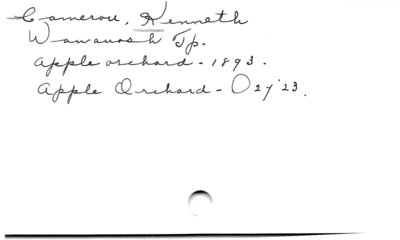 Cameron, Kenneth
Wawanosh Tp.
Apple orchard - 1893.
Apple Orchard - O 27 '23.